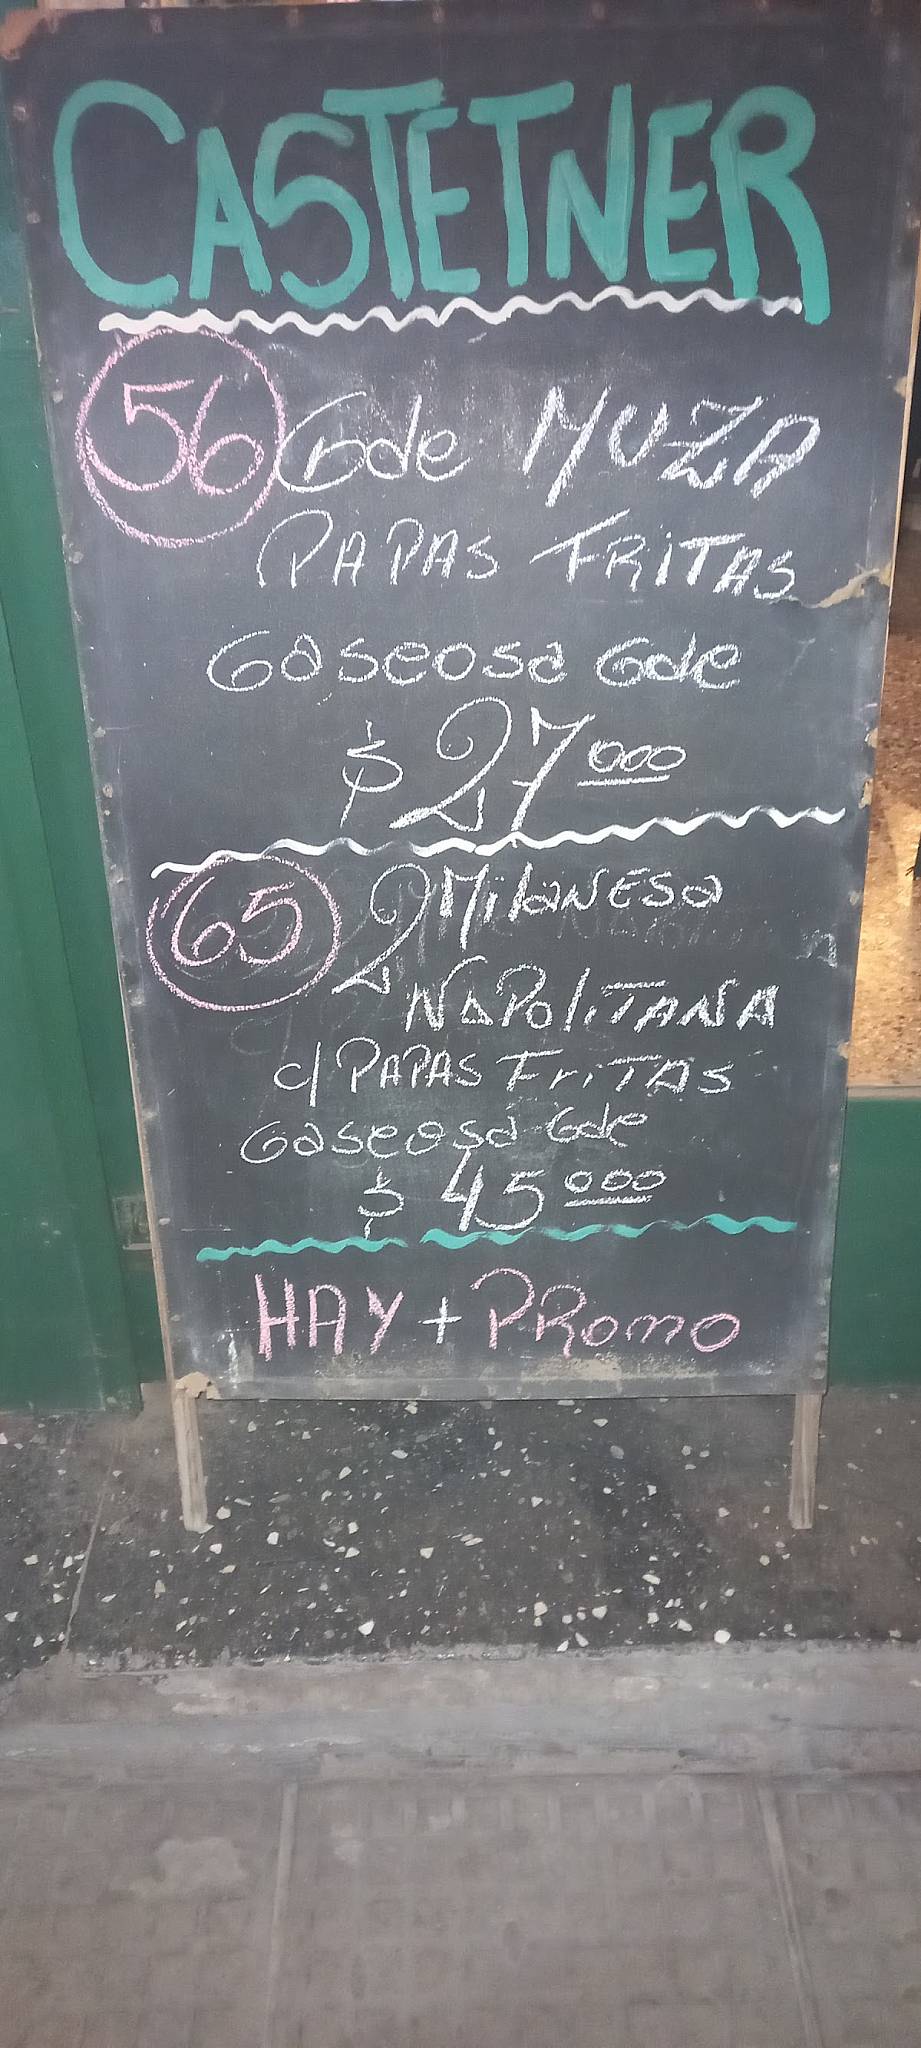 CASTETNER
56 Gde MUZA
PAPAS FRITAS
Gaseosa Gde
$27000
65 2 MilaNESa
NaPoliTANA
c/ PAPAS FriTAS
Gaseosa Gde
$45000
HAY + PRomo